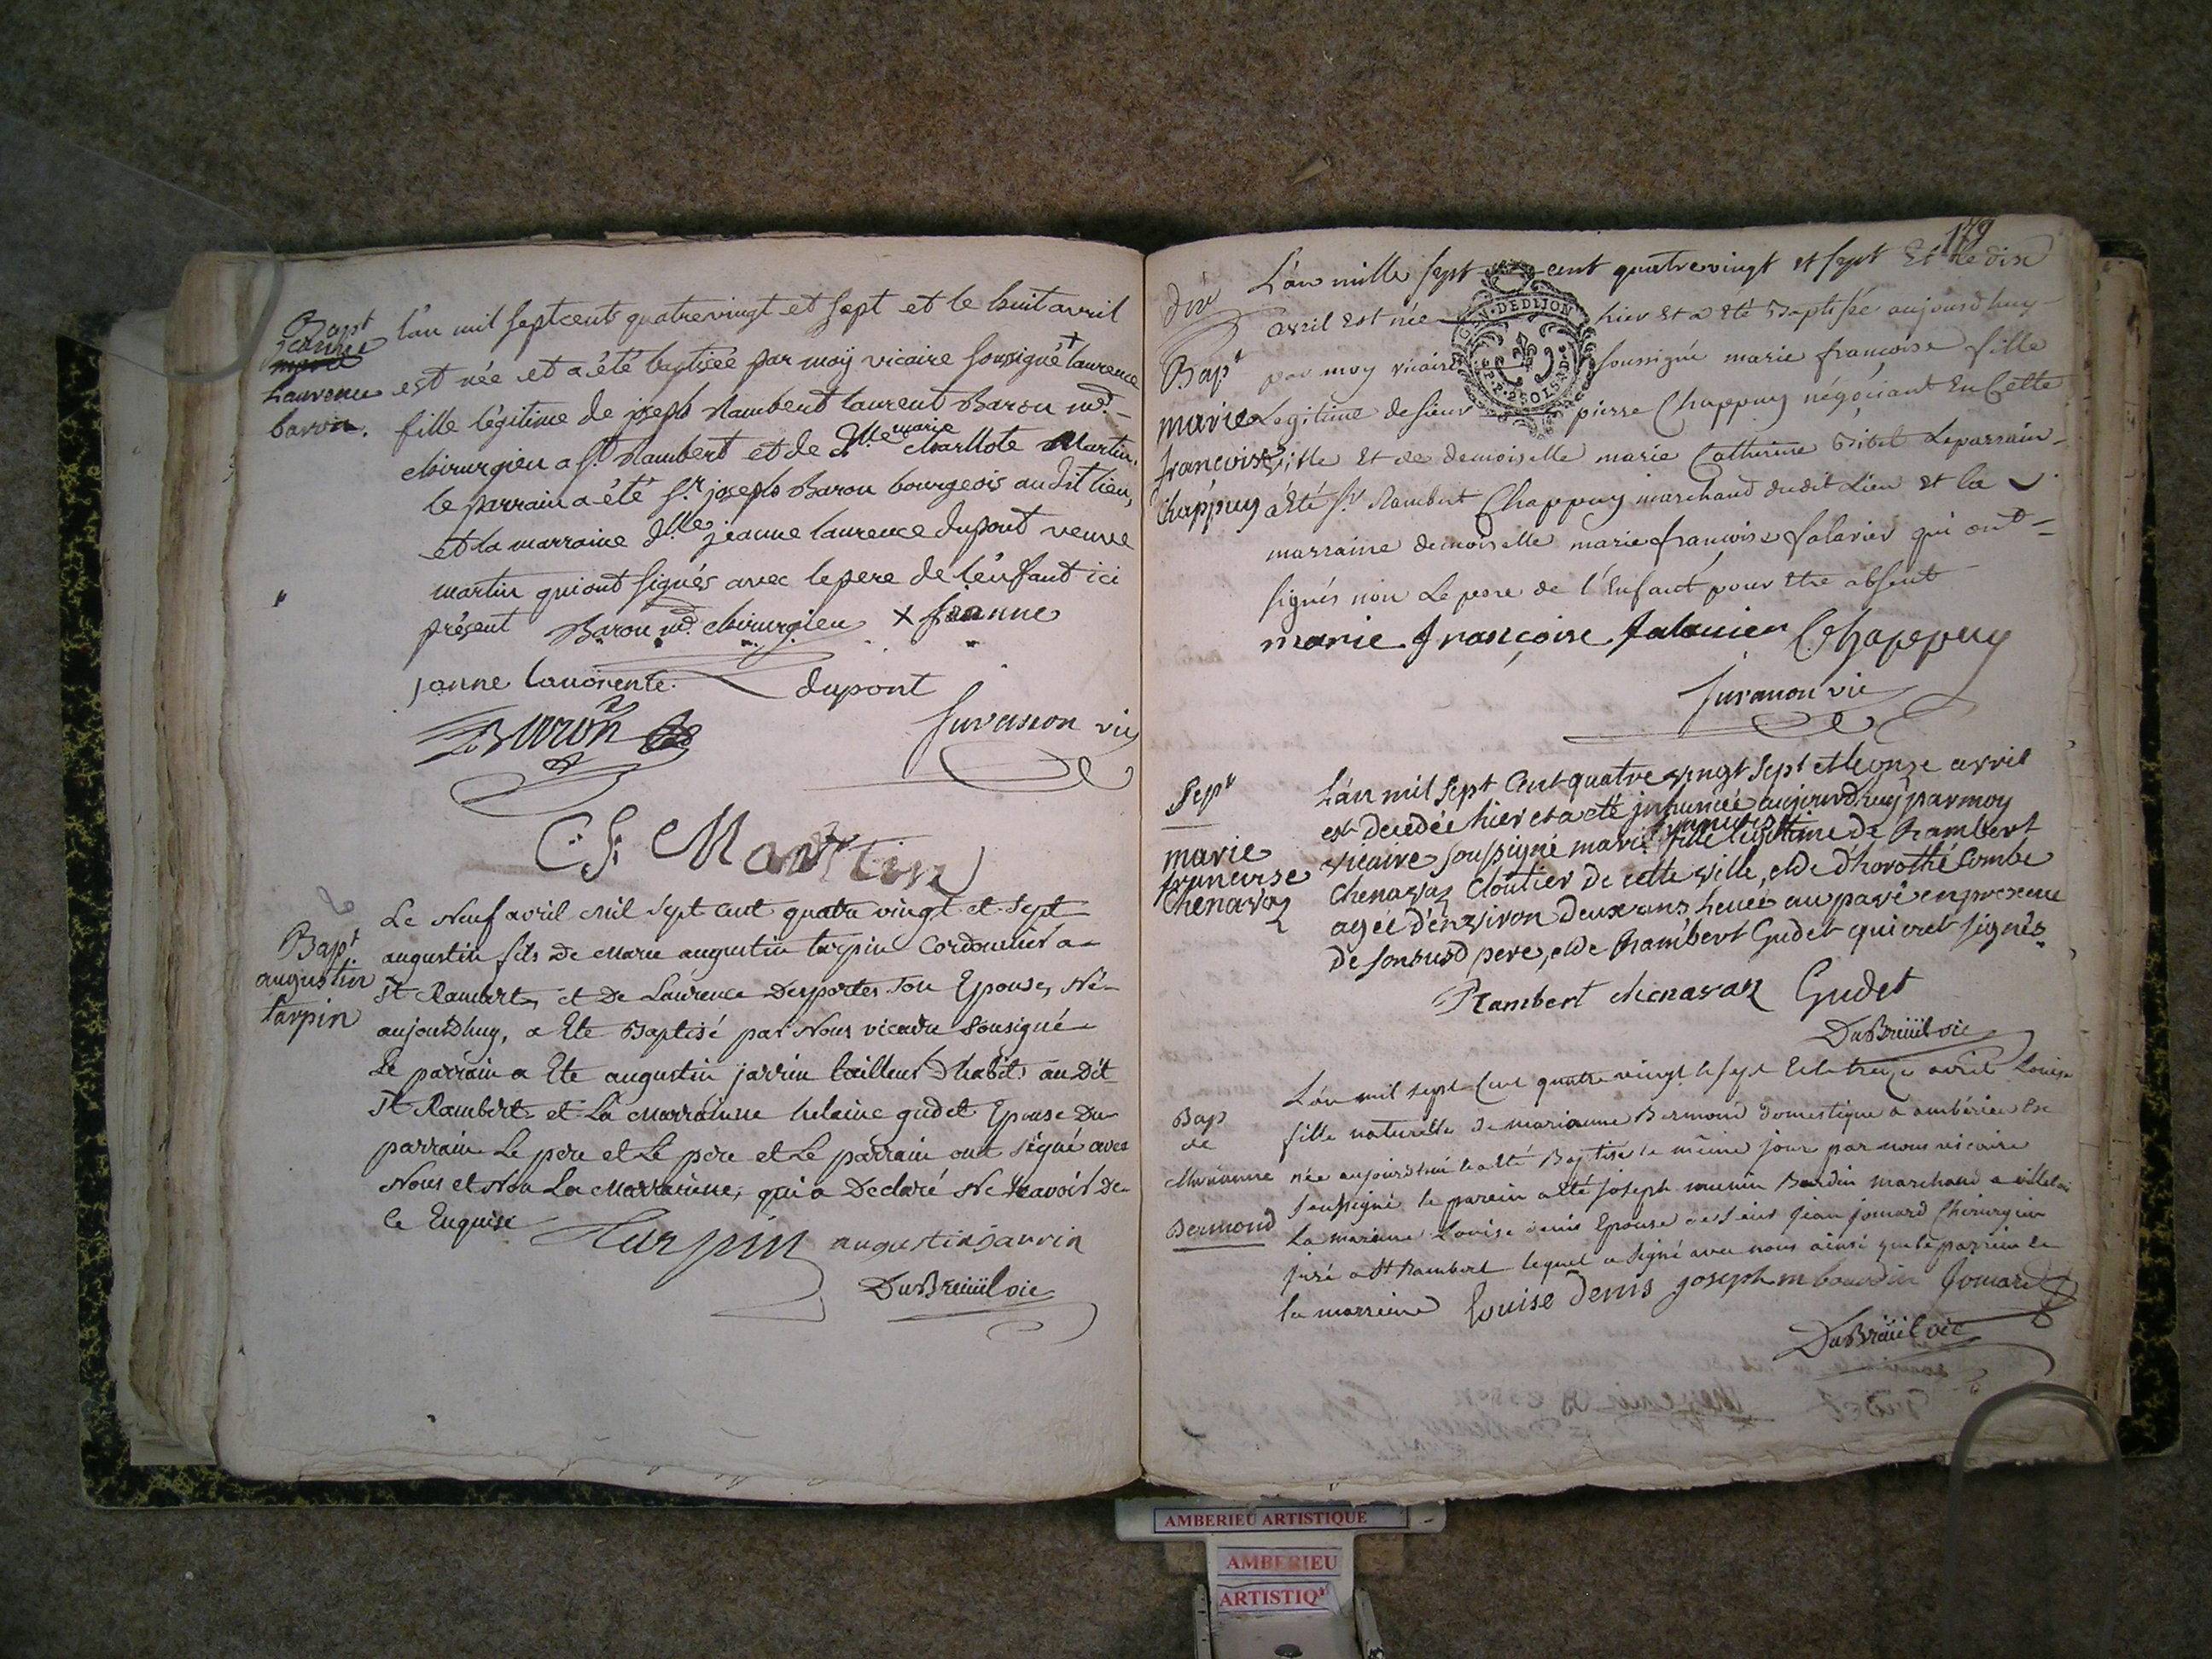 Bapt
jeanne
marie
Laurence
baron.
l'an mil septcents quatrevingt et sept et le huit avril
est née et a été baptisée par moÿ vicaire soussigné + laurence
fille légitime de joseph Rambert laurent Baron md.
chirurgien a st. Rambert et de dlle marie charllote Martin.
le parrain a été sr. joseph Baron bourgeois audit lieu,
et la marraine dlle jeanne laurence dupont veuve
martin qui ont signés avec le pere de l'enfant ici
présent Baron md. chirurgien x jeanne
janne lauorente dupont
Baron
Juvanon vic
C. S. Martin
Bapt.
augustin
tarpin
Le Neuf avril Mil Sept cent quatre vingt et sept
augustin fils De Marie augustin tarpin Cordonnier a
St Rambert, et De Laurence Desportes Son Epouse, Né
aujourdhuy, a Ete Baptisé par Nous vicaire Sousigné
Le parrain a Ete augustin jarrin tailleur D'habits au Dit
St Rambert et La Marrainne helaine gudet Epouse Du
parrain Le pere et Le pere et Le parrain ont signé avec
Nous et Non La Marrainne, qui a Declaré Ne Scavoir De
ce Enquise
Tarpin augustin jarrin
DuBreüil vic
179
dix
Bapt
marie
francoise
Chappuy
L'an mille sept cent quatrevingt et sept Et le dix
avril est née hier Et a été Baptisée aujourdhuy
par moy vicaire soussigné marie françoise fille
Legitime de sieur pierre Chappuy négociant En Cette
ville Et de demoiselle marie Catherine Bibet Le parrain
a Eté sr. Rambert Chappuy marchand dudit Lieu et la
marraine demoiselle marie françoise falavier qui ont
signés non Le pere de l'Enfant pour être absent
marie françoise falavier Chappuy
Juvanon vic
GEN. DE DIJON
Sepre
marie
francoise
Chenavaz
L'an mil sept Cent quatre vingt sept et le onze avril
est decedée hier et a été inhumée aujourdhuy par moy
vicaire soussigné marie francoise fille legitime de Rambert
Chenavaz Cloutier de cette ville, et de d'horothé Combe
agée d'environ deux ans, heue au pavé en presence
de son susd pere, et de Rambert Gudet qui ont signés
Rambert chenavaz Gudet
DuBreüil vic
Bap
de
Marianne
Bermond
L'an mil sept Cent quatre vingt et sept Et le treize avril Louise
fille naturelle de marianne Bermond domestique a ambérieu Est
née aujourdhui et a été Baptisé le même jour par nous vicaire
soussigné le parein a été joseph Bardin marchand a
La mareine Louise denis Epouse de sieur jean jomard Chirurgien
juré a St Rambert lequel a signé avec nous ainsi que le parrein et
la marreine Louise denis joseph m bourdin Jomard
DuBreüil vic
AMBERIEU ARTISTIQUE
AMBERIEU
ARTISTIQ